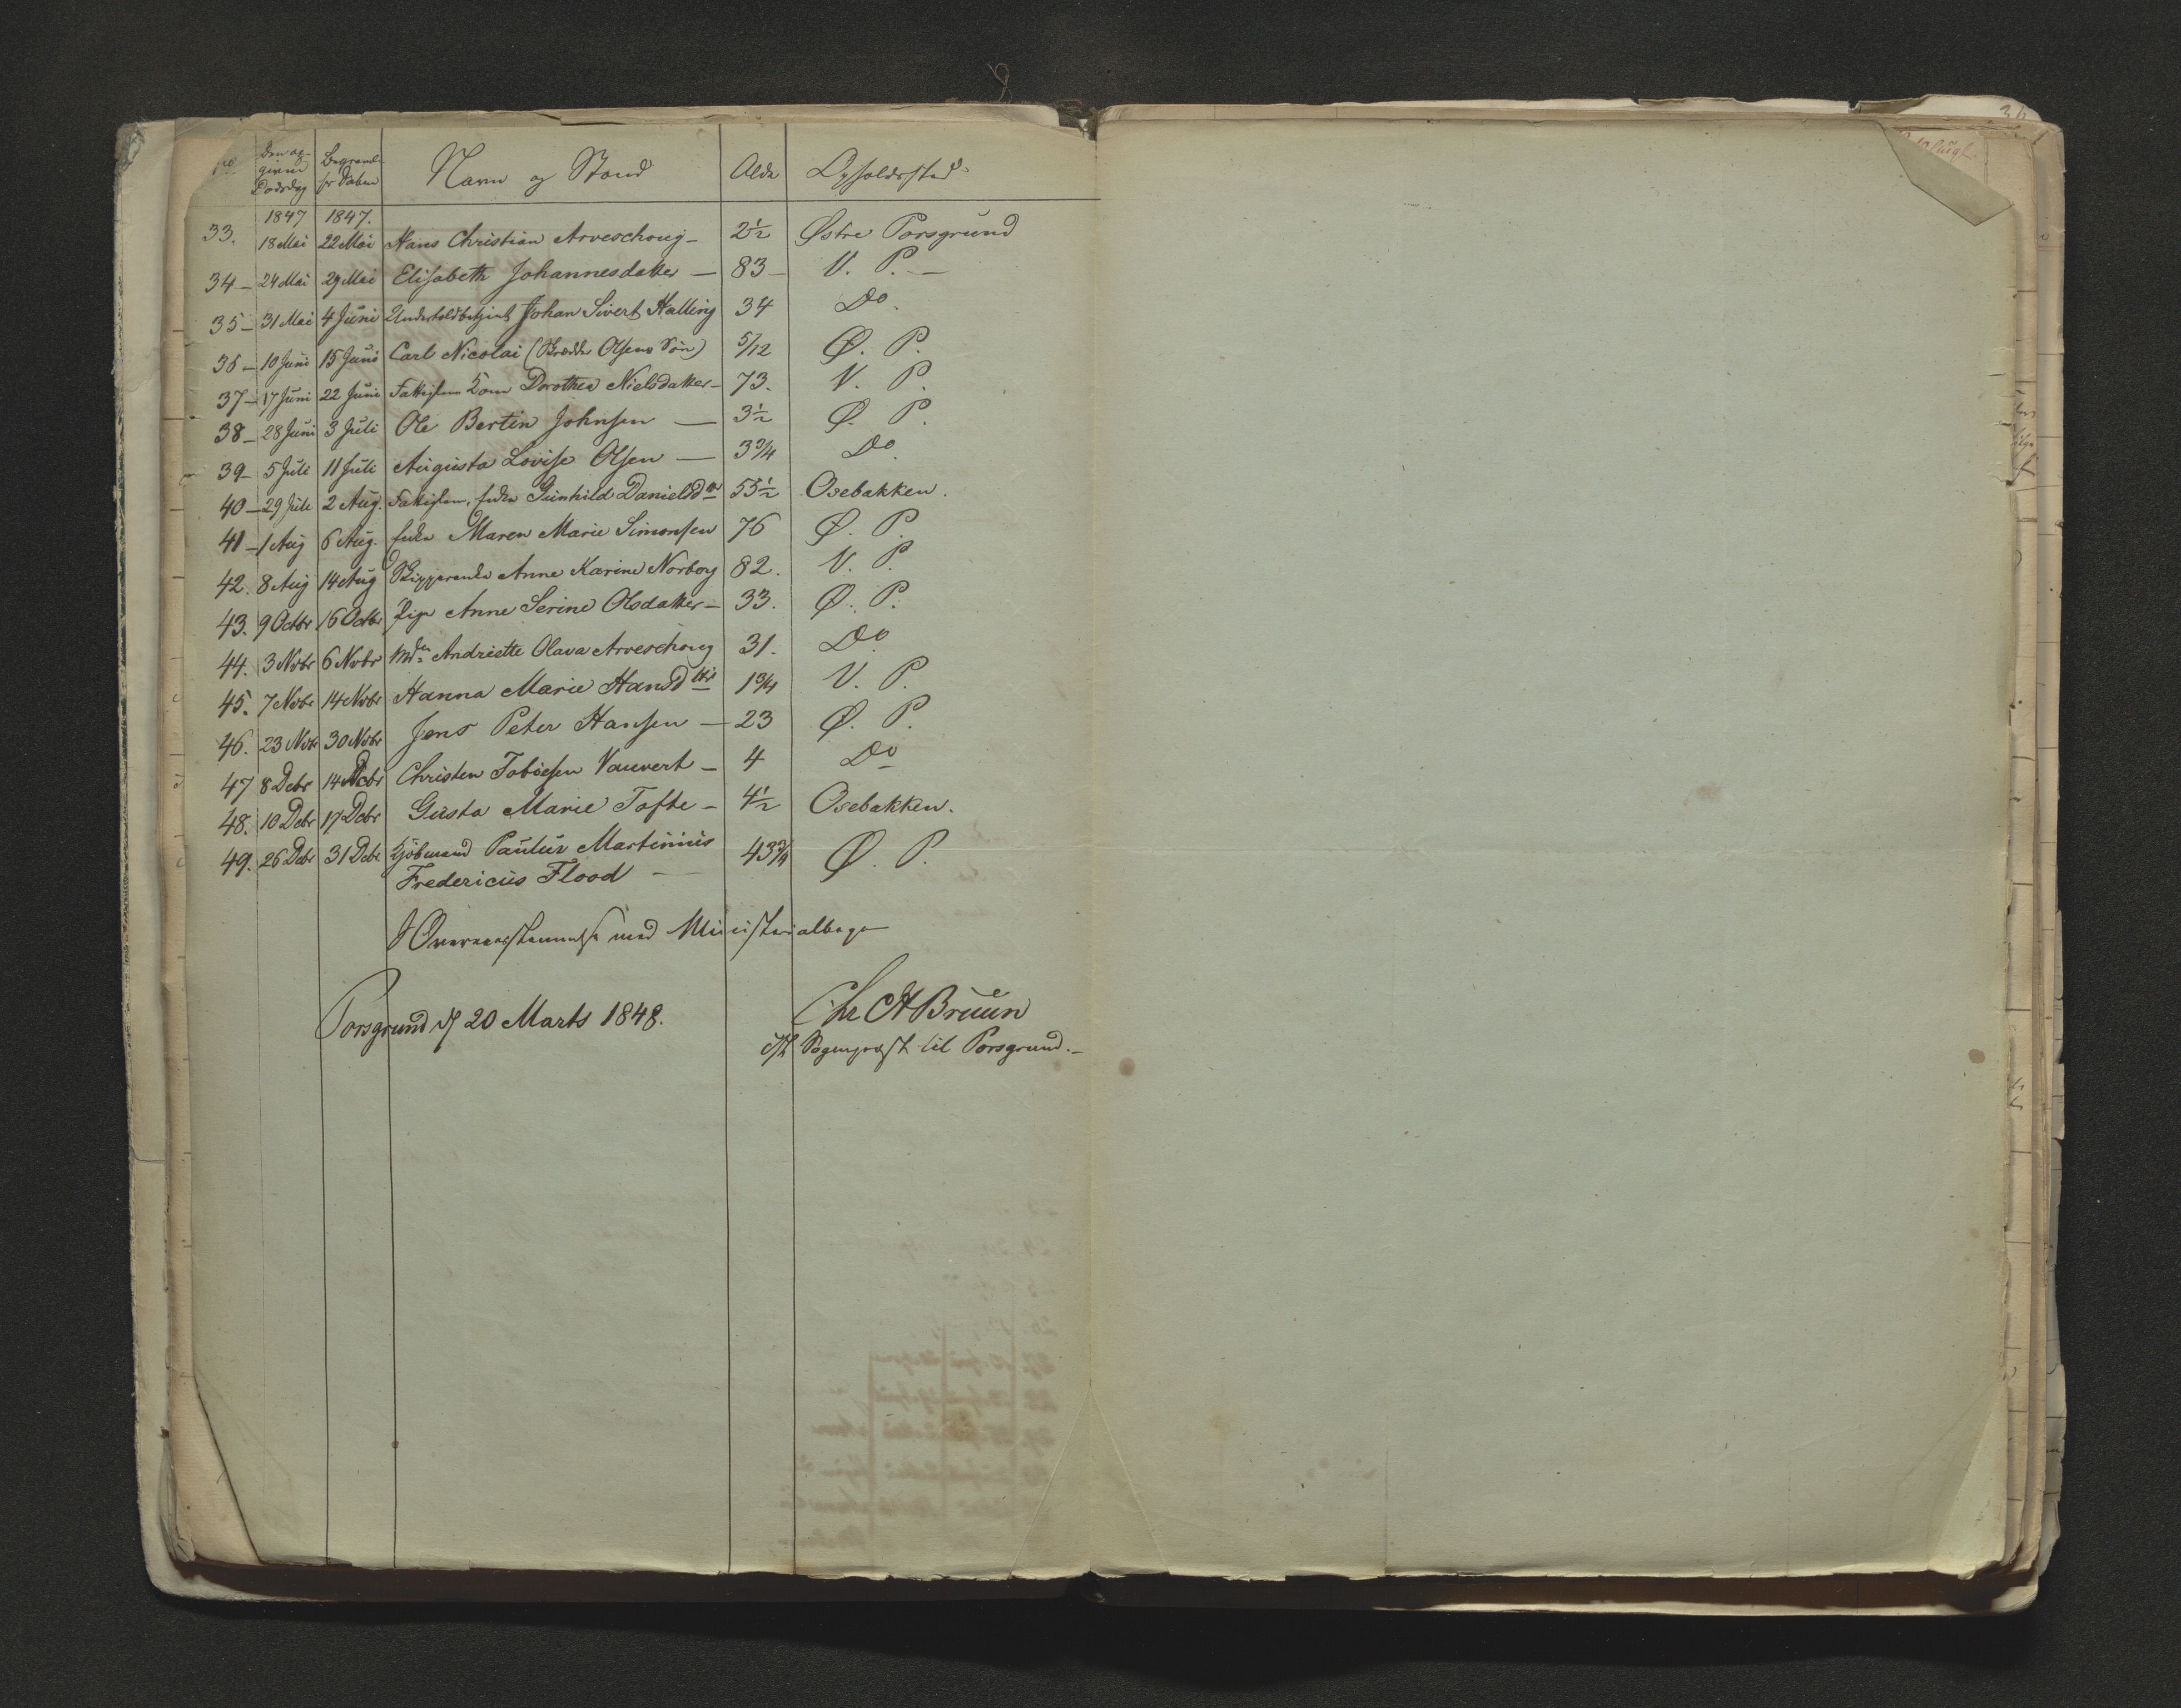 No Den op- Begravel- Navn og Stand Alder Opholdssted
givne
Dødsdag
1847 1847.
33. 18 Mai 22 Mai Hans Christian Arveschoug - 2½ Østre Porsgrund
34 - 24 Mai 29 Mai Elisabeth Johannesdatter — 83 - V. P. —
35 - 31 Mai 4 Juni Johan Sivert Halling 34 Do.
36 - 10 Juni 15 Juni Carl Nicolai (Skrædder Olsens Søn) 5/12 Ø. P.
37 - 17 Juni 22 Juni Fattiglem Kone Dorothea Nielsdatter - 73. V. P.
38 - 28 Juni 3 Juli Ole Bertin Johnsen — 3½ Ø. P.
39 - 5 Juli 11 Juli Augusta Lovise Olsen — 3¾ Do.
40 - 29 Juli 2 Aug. Fattiglem, Enke Gunhild Danielsdtr 55½ Osebakken.
41 - 1 Aug 6 Aug. Enke Maren Marie Simonsen 76 Ø. P.
42. 8 Aug 14 Aug Skipperenke Anne Karine Norborg 82. V. P.
43. 9 Octbr 16 Octbr Pige Anne Serine Olsdatter - 33. Ø. P.
44. 3 Novbr 6 Novbr Andriette Olava Arveschoug 31. Do
45. 7 Novbr 14 Novbr Hanna Marie Hansdttr 1¾ V. P.
46. 23 Novbr 30 Novbr Jens Peter Hansen — 23 Ø. P.
47 8 Decbr 14 Decbr Christen Tobiesen Vauvert - 4 Do
48. 10 Decbr 17 Decbr Gusta Marie Tofte - 4½ Osebakken.
49. 26 Decbr 31 Decbr Kjøbmand Paulus Martinius 43¾ Ø. P.
Fredericus Flood —
I Overensstemmelse med Ministerialboge
Porsgrund d 20 Marts 1848. Chr A Bruun
Sogneprest til Porsgrund. -